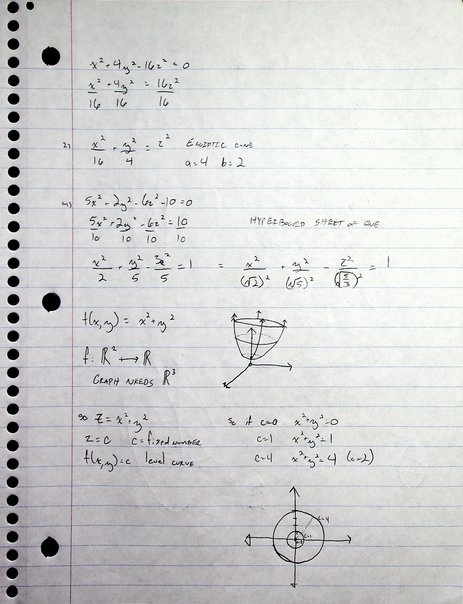 x² + 4y² - 16z² = 0
x²/16 + 4y²/16 = 16z²/16
2) x²/16 + y²/4 = z² Elliptic cone
a=4 b=2
4) 5x² - 2y² - 6z² - 10 = 0
5x²/10 + 2y²/10 - 6z²/10 = 10/10 Hyperboloid sheet of one
x²/2 + y²/5 - 3z²/5 = 1 = x²/(√2)² + y²/(√5)² - z²/(√5/3)² = 1
f(x,y) = x² + y²
f: ℝ² → ℝ
Graph needs ℝ³
so z = x² + y² so if c=0 x² + y² = 0
z = c c = fixed number c=1 x² + y² = 1
f(x,y) = c level curve c=4 x² + y² = 4 (r=2)
c=4